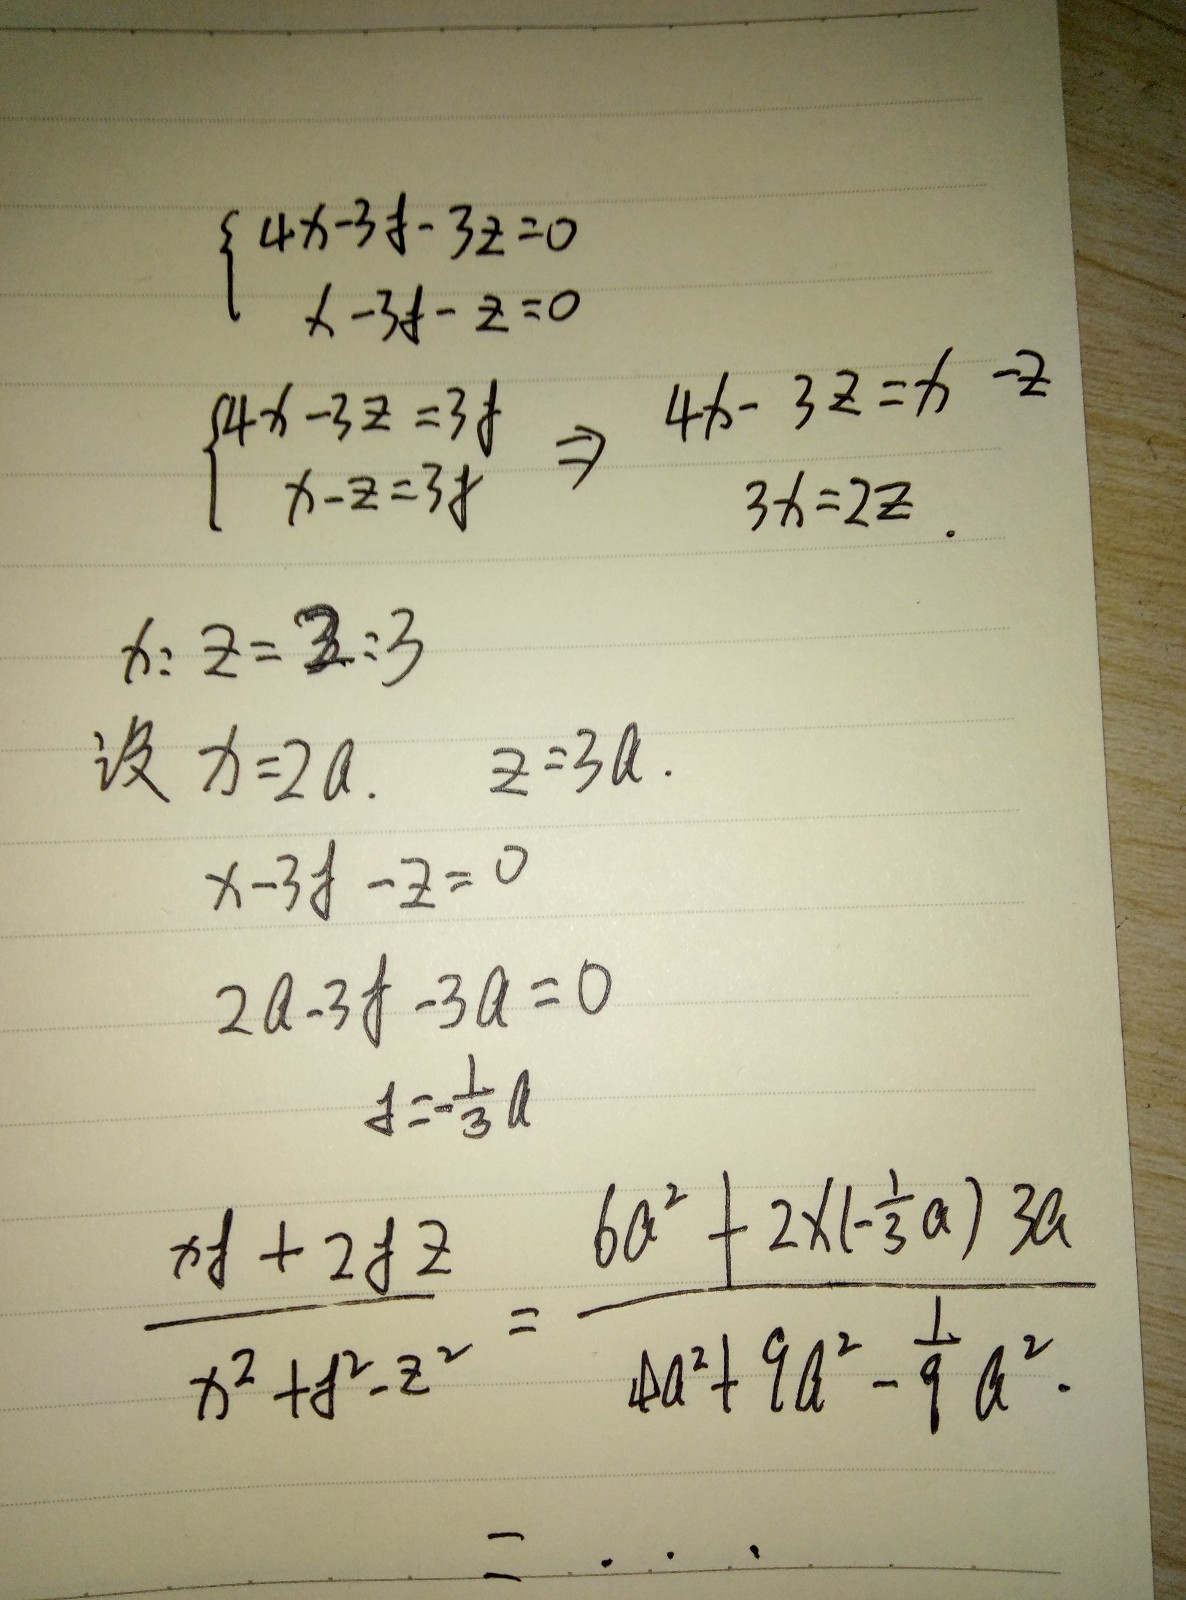 { 4x-3y-3z=0
x-3y-z=0
{ 4x-3z=3y ⇒ 4x-3z=x-z
x-z=3y 3x=2z.
x:z=2:3
设 x=2a. z=3a.
x-3y-z=0
2a-3y-3a=0
y=-1/3 a
(xy+2yz)/(x²+y²-z²) = (6a²+2×(-1/3 a)3a)/(4a²+9a²-1/9 a².)
= ...